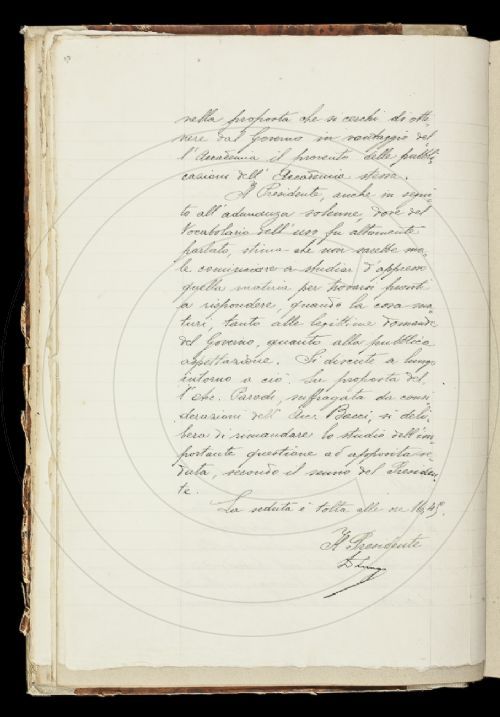 nella proposta che si cerchi di otte-
nere dal Governo in vantaggio del-
l'Accademia il provento delle pubbli-
cazioni dell'Accademia stessa.
Il Presidente, anche in segui-
to all'adunanza solenne, dove del
Vocabolario dell'uso fu altamente
parlato, stima che non sarebbe ma-
le cominciare a studiar d'appresso
quella materia per trovarsi pronti
a rispondere, quando la cosa ma-
turi, tanto alle legittime domande
del Governo, quanto alla pubblica
aspettazione. Si discute a lungo
intorno a ciò. Su proposta del-
l'Acc. Parodi, suffragata da consi-
derazioni dell'Acc. Bacci, si deli-
bera di rimandare lo studio dell'im-
portante questione ad apposita se-
duta, secondo il senno del Presiden-
te.
La seduta è tolta alle ore 16,45.
Il Presidente